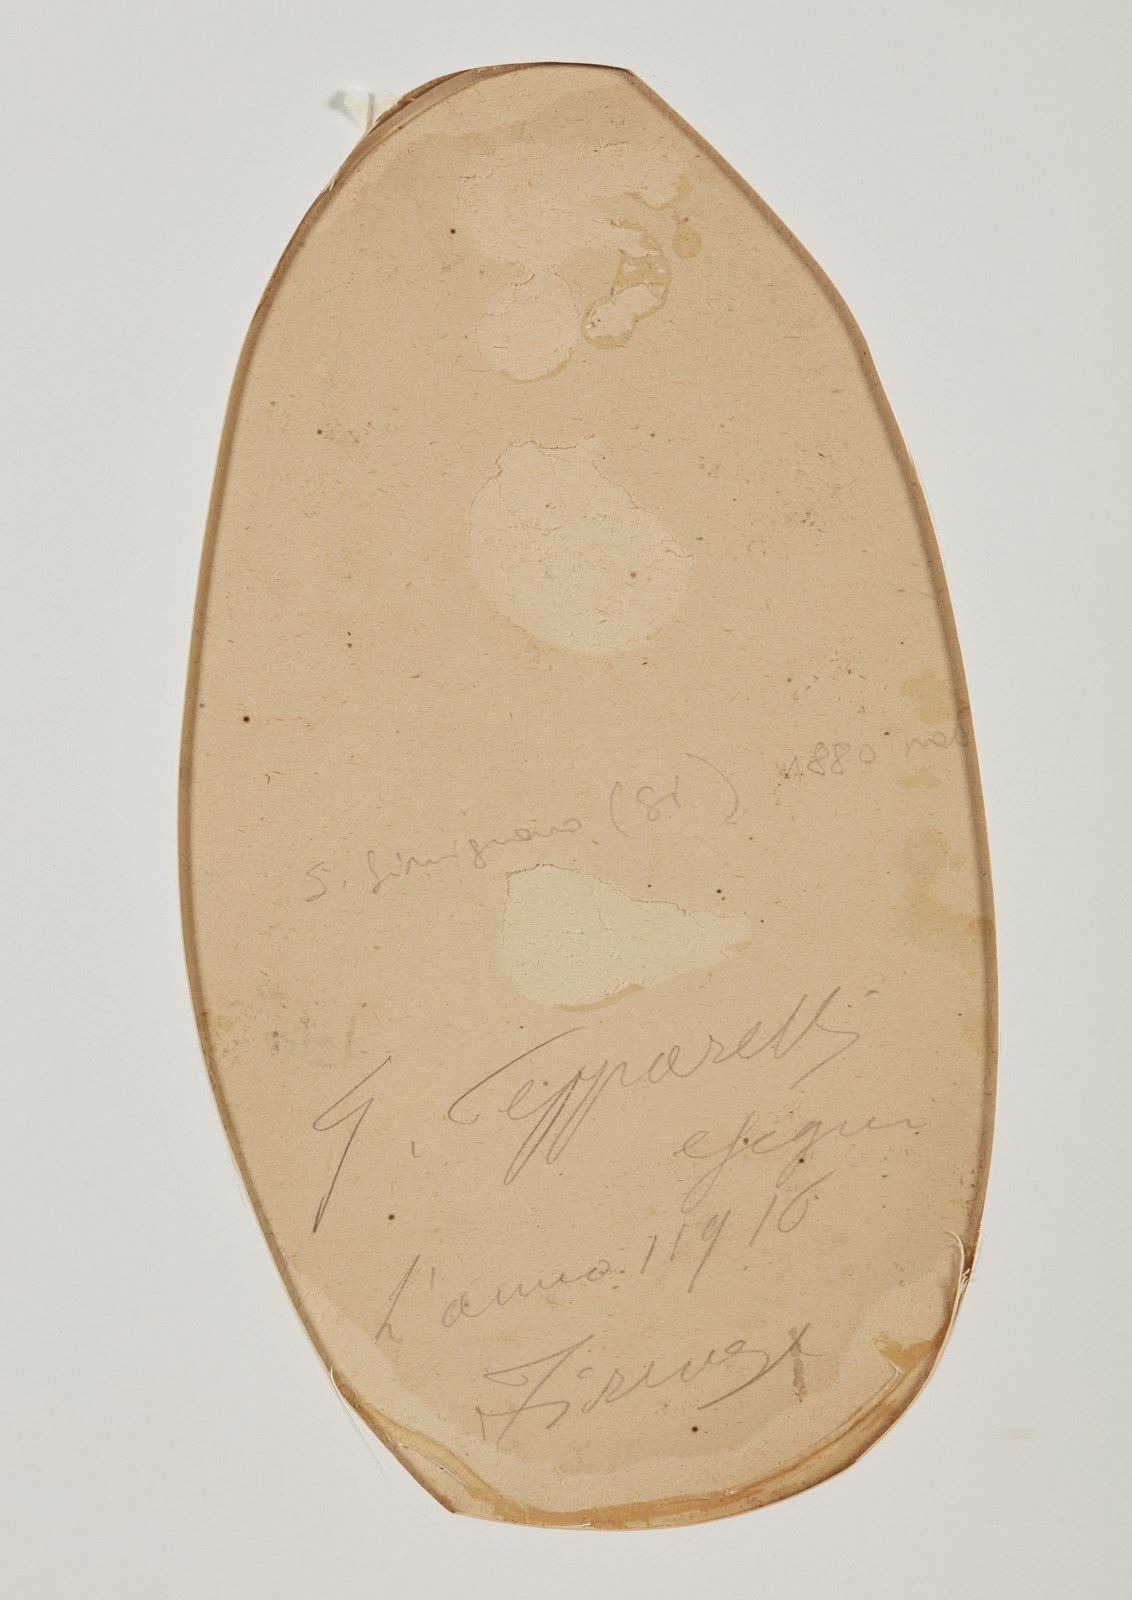 S. Gimignano (Si) 1880 nato
G. Tepparelli
eseguì
L'anno 1916
Firenze